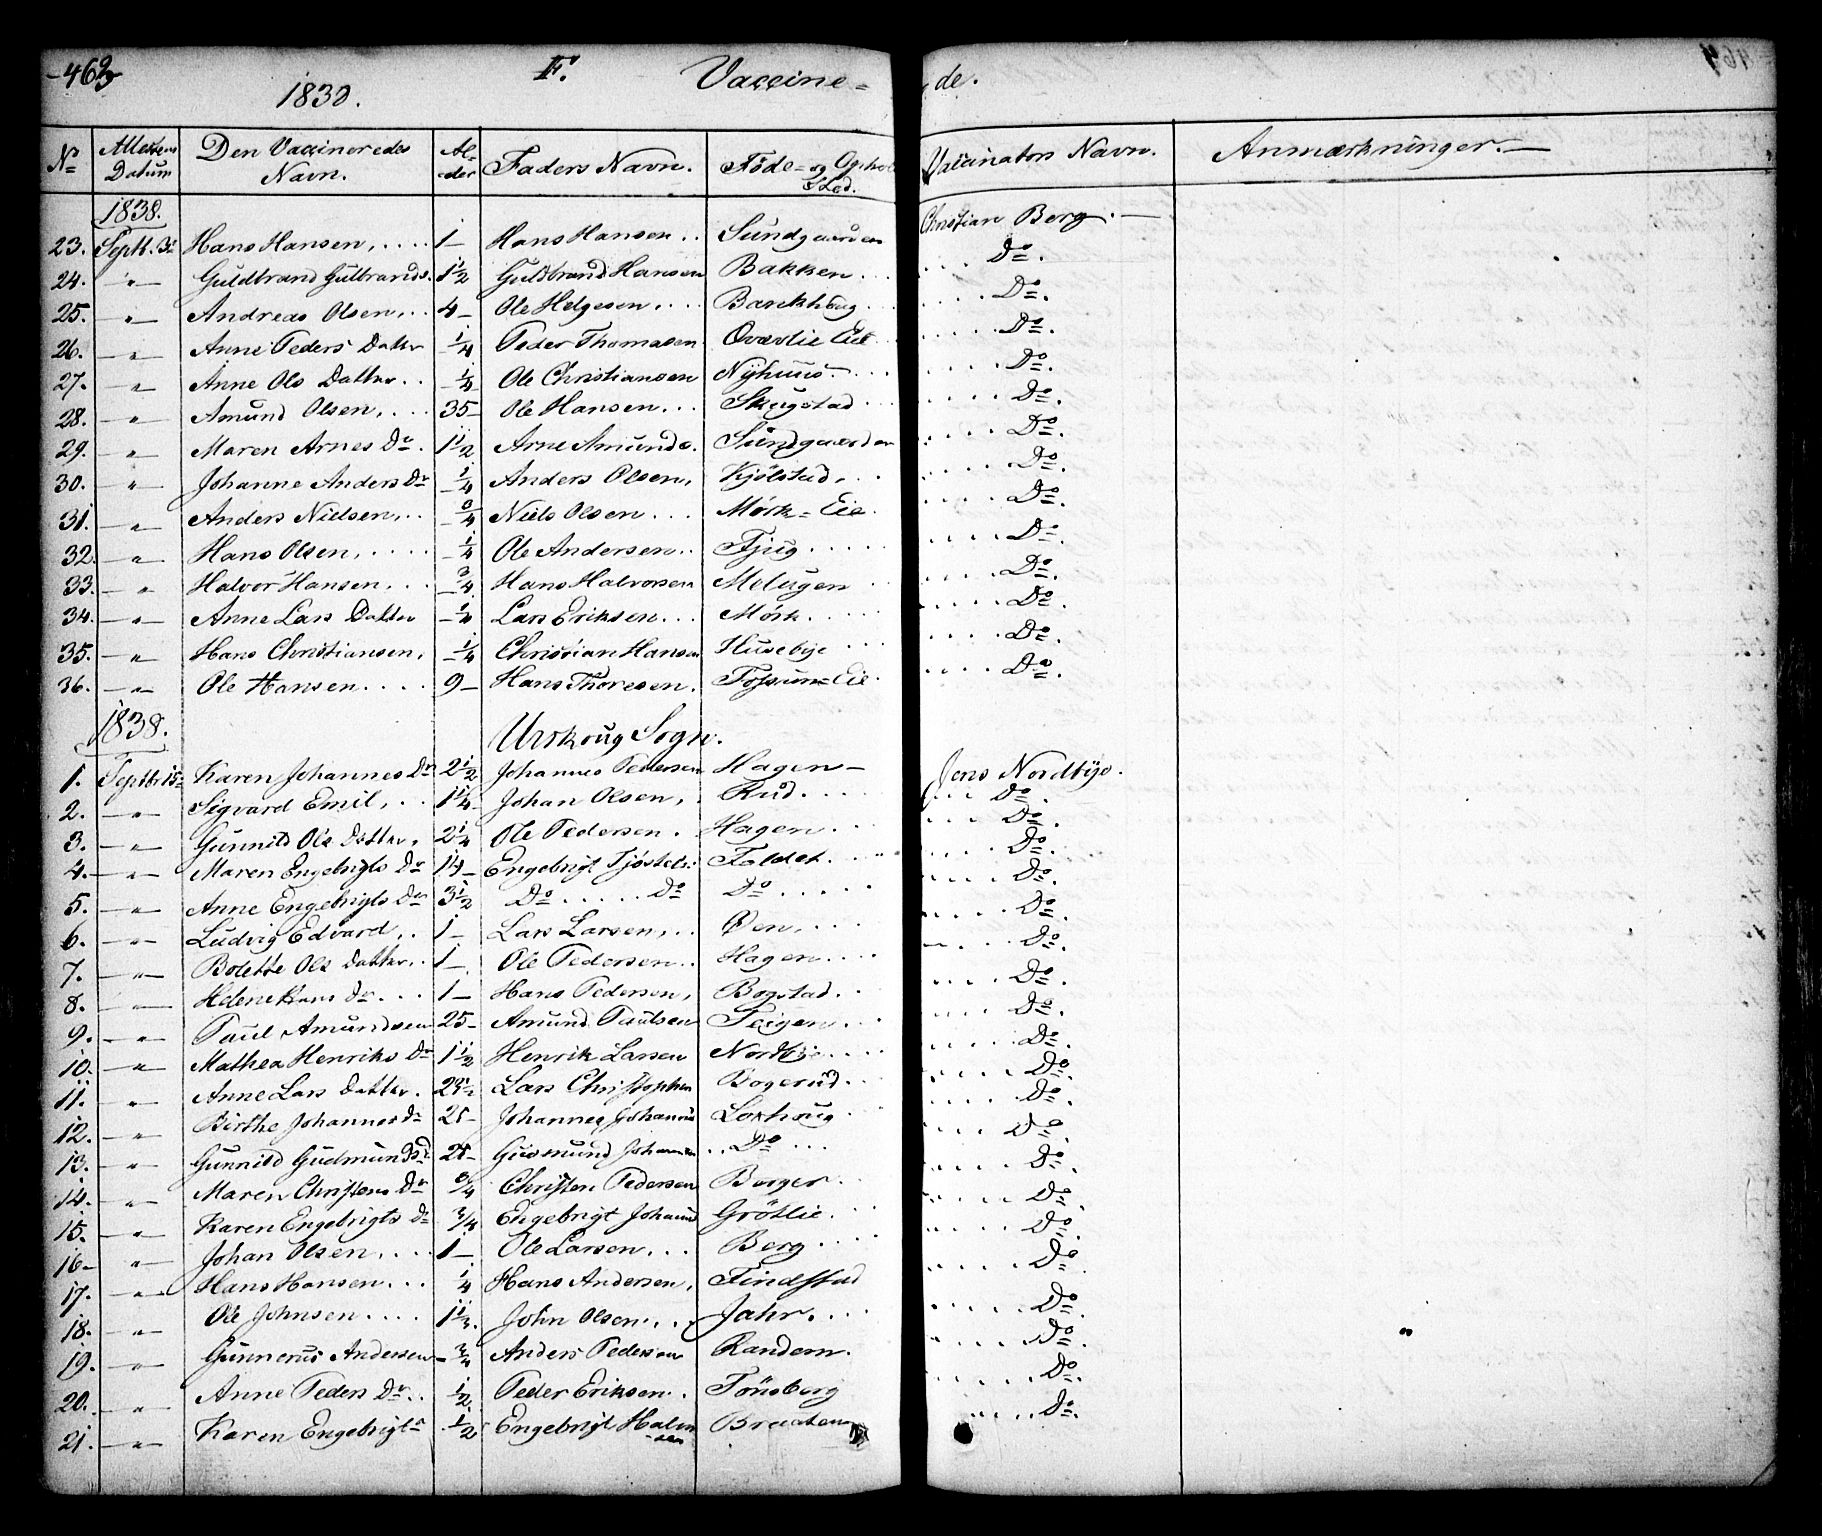 463 F. Vaccine- de.
1838.
No Attestens Datum Den Vaccineredes Navn. Al-der Faders Navn. Føde- og Opholds Sted. Vaccinators Navn. Anmærkninger.
1838.
23. Septb. 3. Hans Hansen, .... 1 Hans Hansen .. Sundgaarden Christian Berg.
24. " Guldbrand Gulbrands. 1 1/2 Guldbrand Hansen Bakken ... Do.
25. " Andreas Olsen, .. 4 Ole Helgesen, ... Bankhoug ... Do.
26. " Anne Peders Datter 1/4 Peder Thomasen Oværlie Eie ... Do.
27. " Anne Ols Datter .. 1/4 Ole Christiansen Nyhuus ... Do.
28. " Amund Olsen, ... 35 Ole Hansen ... Skugstad ... Do.
29. " Maren Arnes Dr. 1 1/2 Arne Amunds. Sundgaarden ... Do.
30. " Johanne Anders Dr 1/4 Anders Olsen, Kjølstad, ... Do.
31. " Anders Nielsen, .. 3/4 Niels Olsen ... Mørk-Eie. ... Do.
32. " Hans Olsen, .... 1/4 Ole Andersen .. Fjug ..... Do.
33. " Halvor Hansen ... 3/4 Hans Halvorsen Melugen ... Do.
34. " Anne Lars Datter 1/4 Lars Eriksen ... Mørk .... Do.
35. " Hans Christiansen, 1/4 Christian Hansen Husebye ... Do.
36. " Ole Hansen .... 9 Hans Thoresen. Fossum-Eie. ... Do.
1838. Urskoug Sogn.
1. Septbr 15 Karen Johannes Dr 2 1/2 Johannes Pedersen Hagen Jens Nordbye.
2. " Sigvard Emil, .. 1 1/4 Johan Olsen, . Rud .... Do.
3. " Gunnild Ols Datter, 2 1/4 Ole Pedersen . Hagen ... Do.
4. " Maren Engebrigts Dr 14 Engebrigt Tjøstels: Foldet .... Do.
5. " Anne Engebrigts Dr 3 1/2 Do ..... Do Do ..... Do.
6. " Ludvig Edvard, .. 1 Lars Larsen, .. Øen, .... Do.
7. " Bolette Ols Datter, . 1 Ole Pedersen .. Hagen .... Do.
8. Helene Hans Dr. ... 1 Hans Pedersen, Bogstad .. Do.
9. " Paul Amundsen 25 Amund Paulsen Teigen ... Do.
10. " Mathea Henriks Dr 1 1/2 Henrik Larsen Nordbye .... Do.
11. " Anne Lars Datter. Lars Christophen Bogerud ... Do.
12. " Birthe Johannes Dr Johannes Johannes Loxhoug .. Do.
13. " Gunnild Gudmunds Johannes .. Do ... Do.
14. " Maren Christens Dr 3/4 Christen Pedersen Borger .. Do.
15. " Karen Engebrigts Dr 3/4 Engebrigt Johannes Grøtlie .. Do.
16. " Johan Olsen .... 1 Ole Larsen, ... Berg .... Do.
17. " Hans Hansen ... 1/4 Hans Andersen, Findstad Do.
18. " Ole Johnsen .... 1 1/3. John Olsen, .. Jahr. ... Do.
19. " Gunnerus Andersen 3/4 Anders Pedersen Randem. Do.
20. " Anne Peders Dr .. 1/2 Peder Eriksen .. Tønsberg Do.
21. " Karen Engebrigts 1/2 Engebrigt Halvorsen Braaten Do.